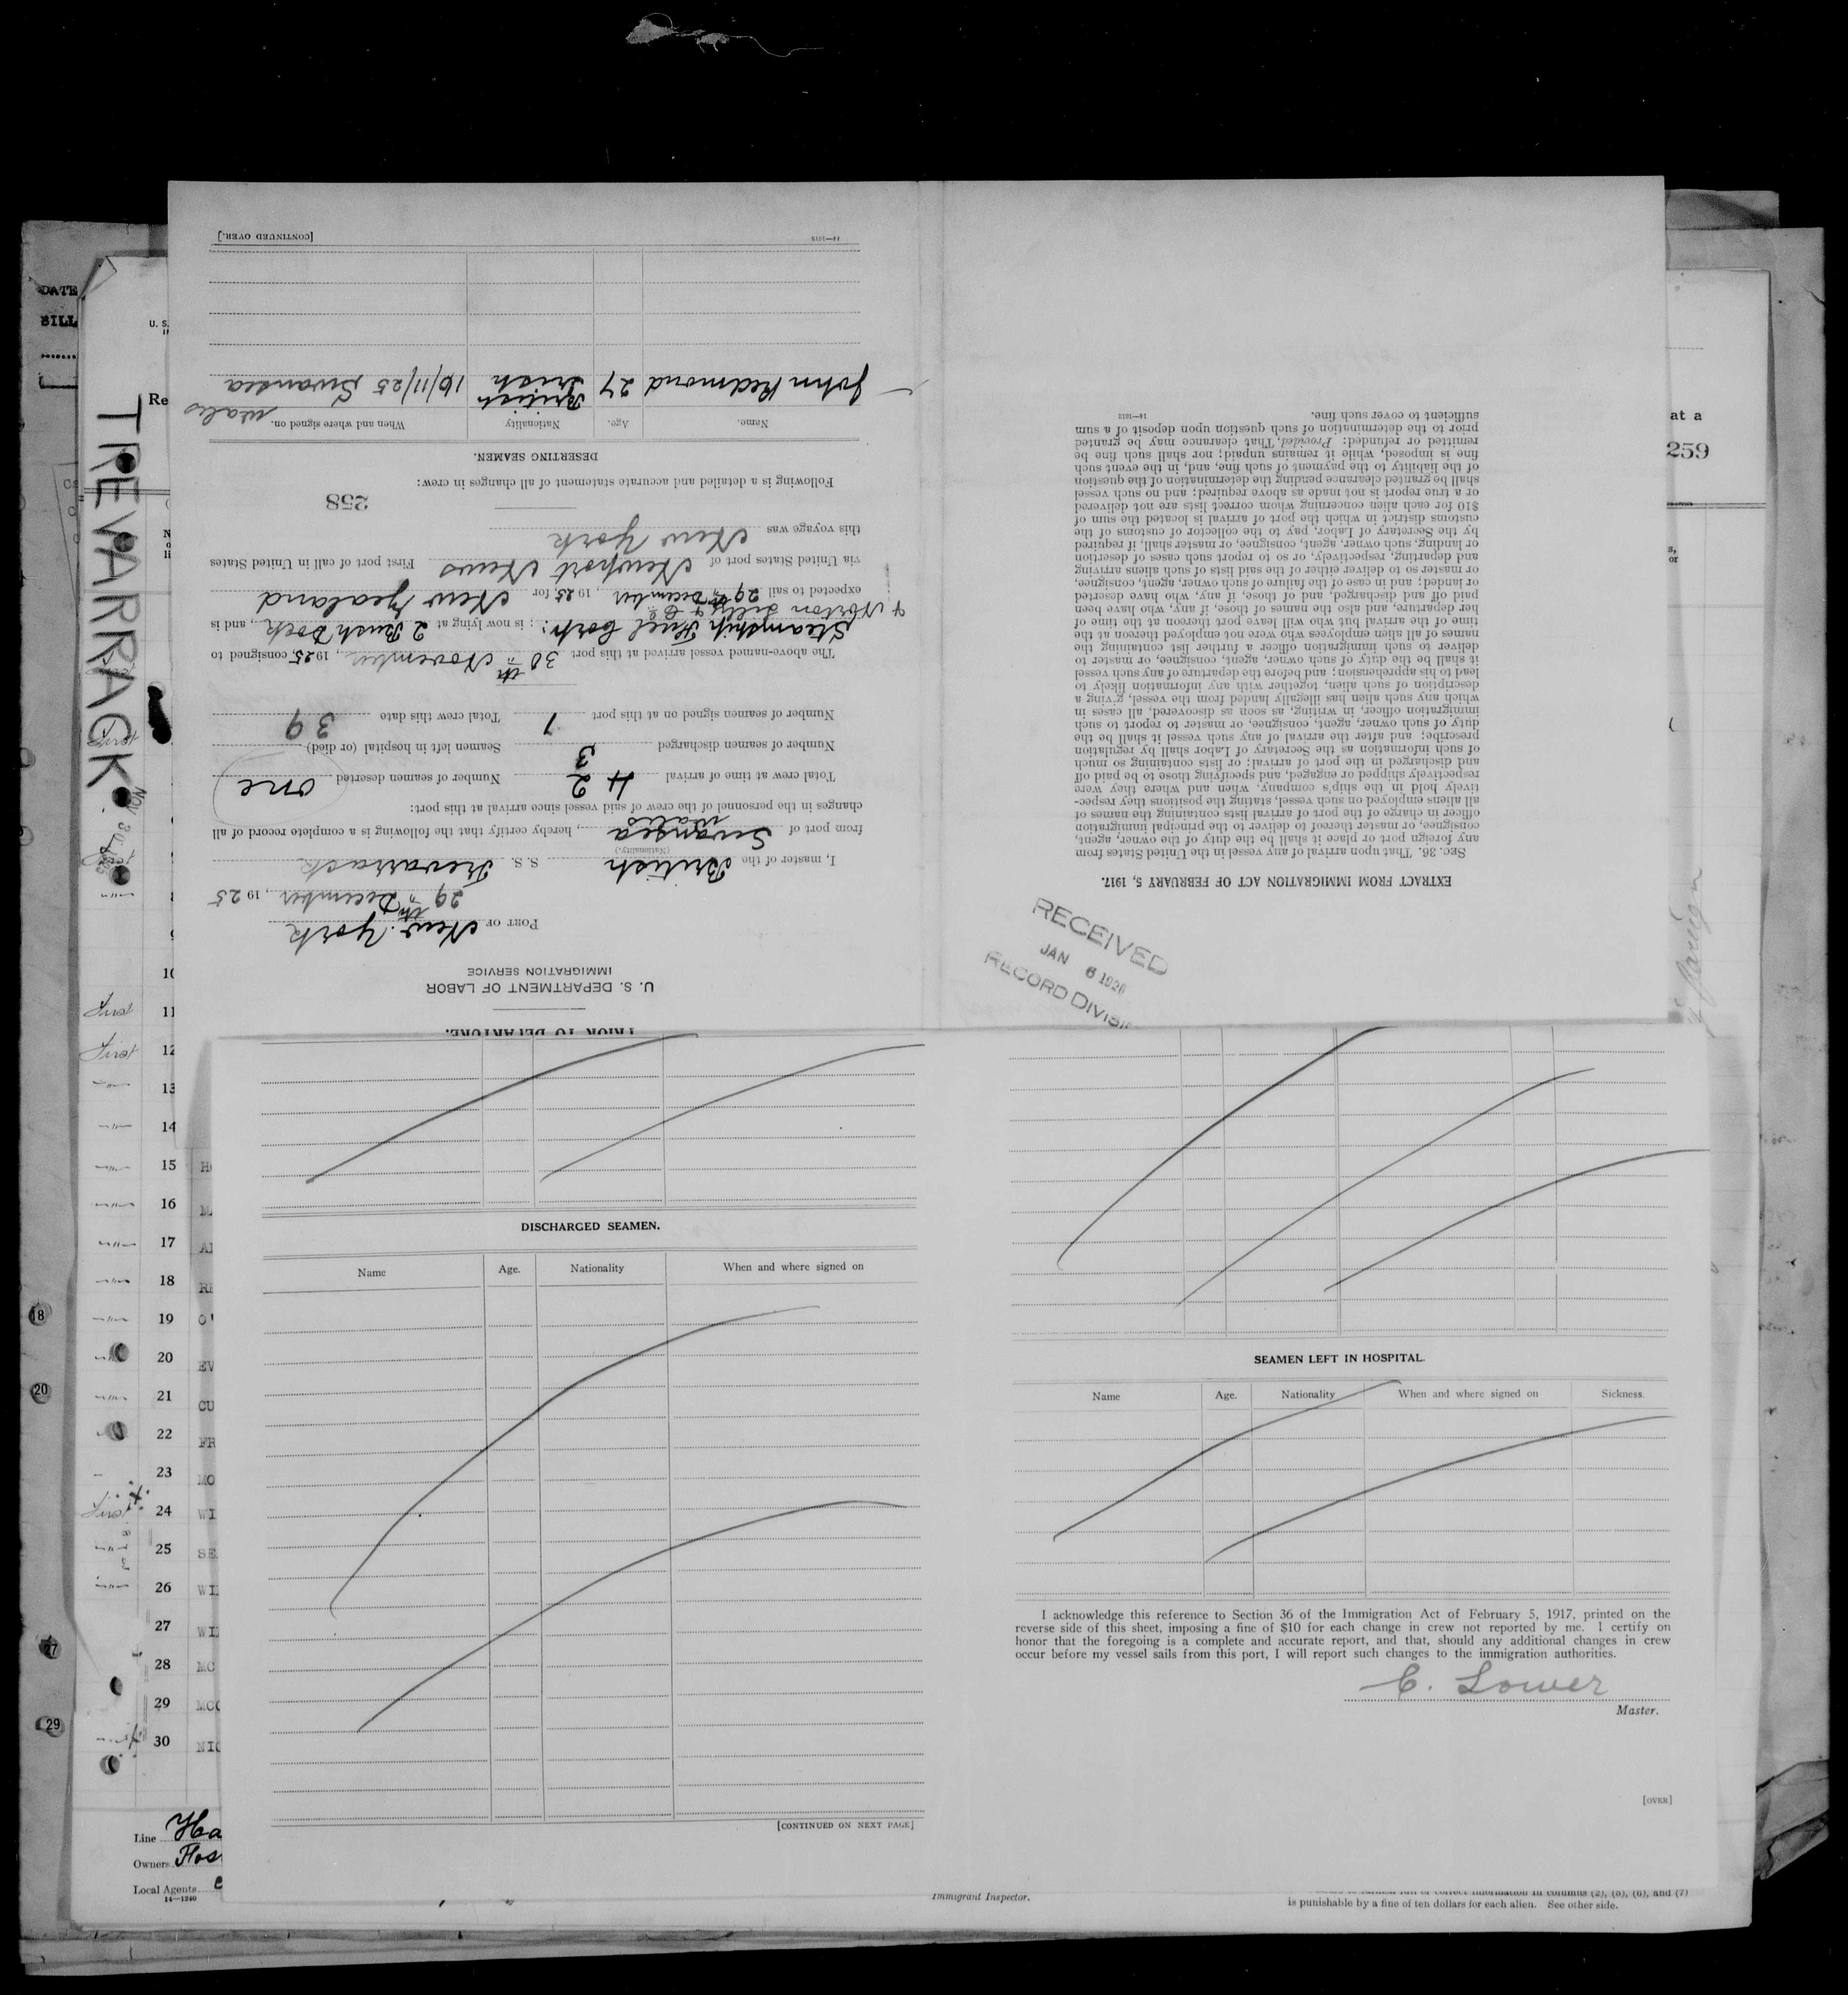 PRIOR TO DEPARTURE.
U. S. DEPARTMENT OF LABOR
IMMIGRATION SERVICE
PORT OF New York
29th December, 1925
I, master of the British S. S. Trevarrack
(Nationality.)
from port of Swansea Wales, hereby certify that the following is a complete record of all
changes in the personnel of the crew of said vessel since arrival at this port:
Total crew at time of arrival 42 Number of seamen deserted one
Number of seamen discharged 3 Seamen left in hospital (or died)
Number of seamen signed on at this port 1 Total crew this date 39
The above-named vessel arrived at this port 30th November, 1925, consigned to
Steamship Fuel Corp: ; is now lying at 2 Bush Dock, and is
& Norton Lilly & Co
expected to sail 29th December, 1925, for New Zealand
via United States port of Newport News First port of call in United States
this voyage was New York
258
Following is a detailed and accurate statement of all changes in crew:
DESERTING SEAMEN.
Name. Age. Nationality When and where signed on.
John Redmond 27 British Irish 10/11/25 Swansea Wales
14—1812 [CONTINUED OVER.]
EXTRACT FROM IMMIGRATION ACT OF FEBRUARY 5, 1917.
SEC. 36. That upon arrival of any vessel in the United States from
any foreign port or place it shall be the duty of the owner, agent,
consignee, or master thereof to deliver to the principal immigration
officer in charge of the port of arrival lists containing the names of
all aliens employed on such vessel, stating the positions they respec-
tively hold in the ship's company, when and where they were
respectively shipped or engaged, and specifying those to be paid off
and discharged in the port of arrival; or lists containing so much
of such information as the Secretary of Labor shall by regulation
prescribe; and after the arrival of any such vessel it shall be the
duty of such owner, agent, consignee, or master to report to such
immigration officer, in writing, as soon as discovered, all cases in
which any such alien has illegally landed from the vessel, giving a
description of such alien, together with any information likely to
lead to his apprehension; and before the departure of any such vessel
it shall be the duty of such owner, agent, consignee, or master to
deliver to such immigration officer a further list containing the
names of all alien employees who were not employed thereon at the
time of the arrival but who will leave port thereon at the time of
her departure, and also the names of those, if any, who have been
paid off and discharged, and of those, if any, who have deserted
or landed; and in case of the failure of such owner, agent, consignee,
or master so to deliver either of the said lists of such aliens arriving
and departing, respectively, or so to report such cases of desertion
or landing, such owner, agent, consignee, or master shall, if required
by the Secretary of Labor, pay to the collector of customs of the
customs district in which the port of arrival is located the sum of
$10 for each alien concerning whom correct lists are not delivered
or a true report is not made as above required; and no such vessel
shall be granted clearance pending the determination of the question
of the liability to the payment of such fine, and, in the event such
fine is imposed, while it remains unpaid; nor shall such fine be
remitted or refunded: Provided, That clearance may be granted
prior to the determination of such question upon deposit of a sum
sufficient to cover such fine.
14—1812
RECEIVED
JAN 6 1926
RECORD DIVISI
DATE
BILL
U. S.
Re
TREVARRACK.
NOV 30 1925
at a
259
First
10
First 11
First 12
13
14
15
16
17
18
19
20
21
22
23
First 24
25
26
27
28
29
30
18
20
27
29
AL
O'
EV
CU
FR
MO
WI
SE
WI
WI
MC
MCC
NIC
DISCHARGED SEAMEN.
Name Age. Nationality When and where signed on
[CONTINUED ON NEXT PAGE]
SEAMEN LEFT IN HOSPITAL.
Name Age. Nationality When and where signed on Sickness.
I acknowledge this reference to Section 36 of the Immigration Act of February 5, 1917, printed on the
reverse side of this sheet, imposing a fine of $10 for each change in crew not reported by me. I certify on
honor that the foregoing is a complete and accurate report, and that, should any additional changes in crew
occur before my vessel sails from this port, I will report such changes to the immigration authorities.
C. Lower
Master.
[OVER]
Line Ha
Owners Hos
Local Agents
14—1240
Immigrant Inspector.
correct information in columns (2), (5), (6), and (7)
is punishable by a fine of ten dollars for each alien. See other side.